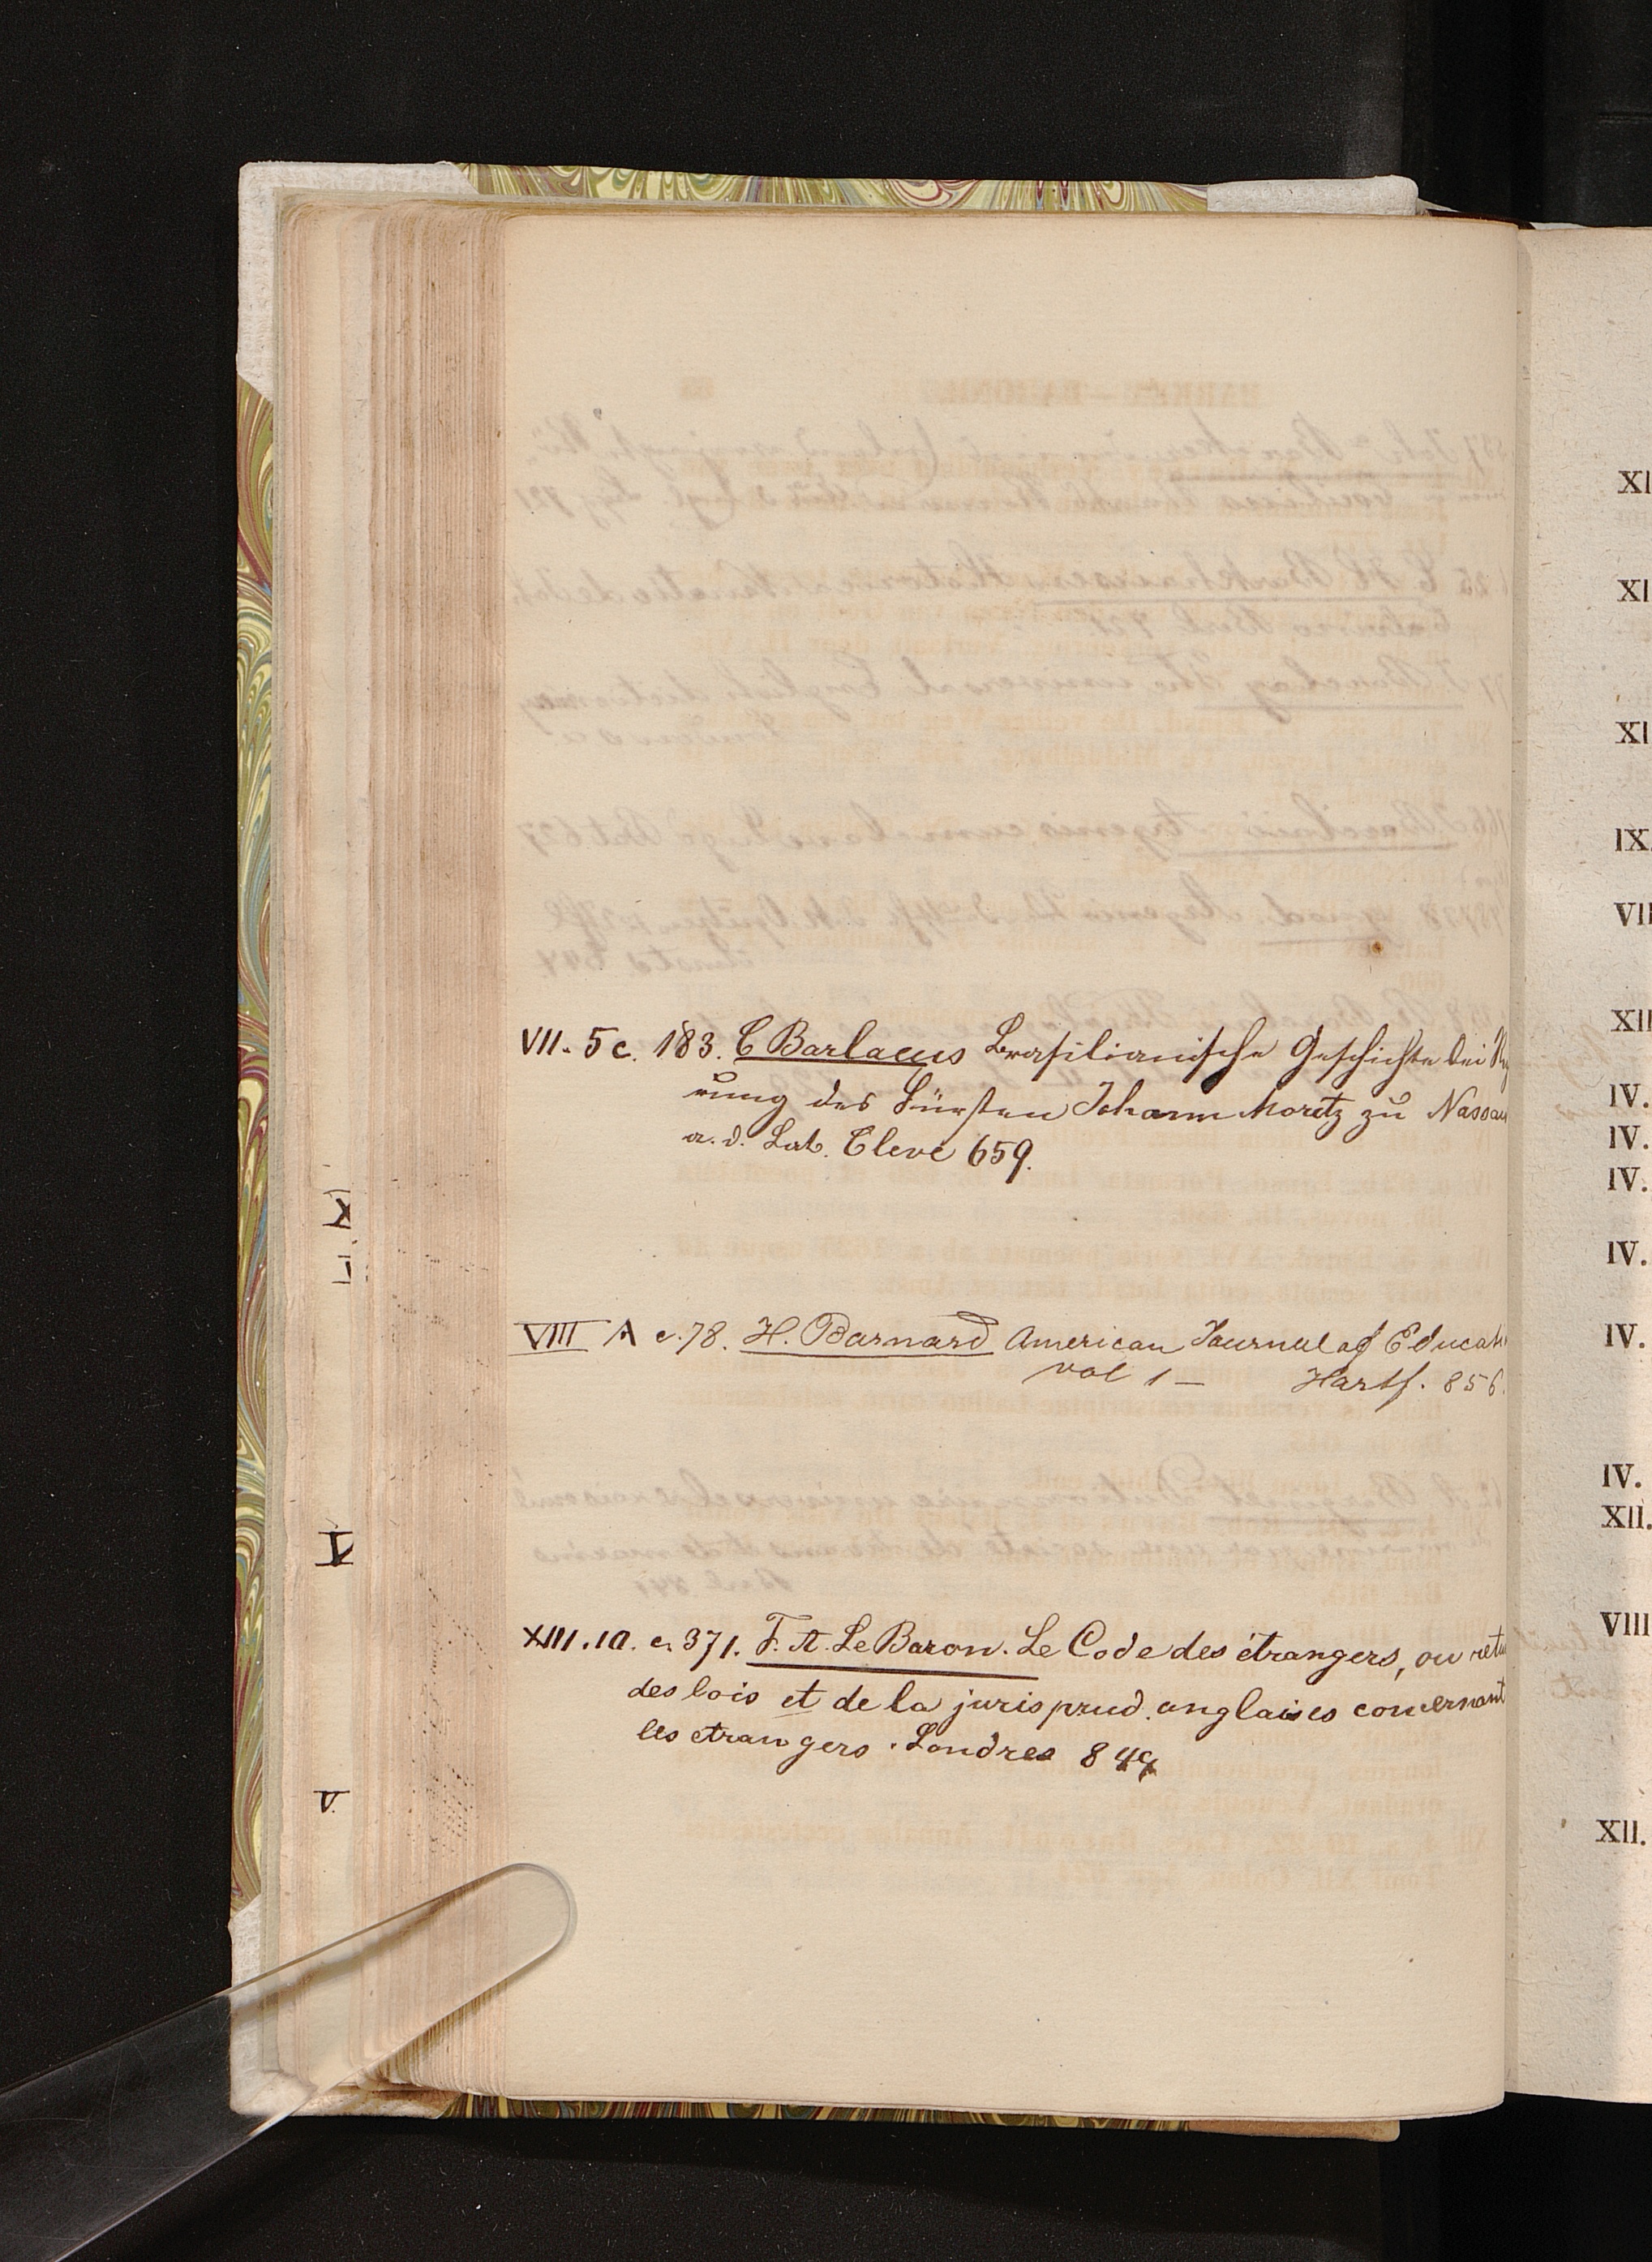 VII. 5 c. 183. C Barlaeus Brasilianische Geschichte bei
rung des Fürsten Johann Moritz zu Nassau
a. d. Lat. Cleve 659.
VIII A c. 78. H. Barnard American Journal of Educati
vol 1 — Hartf. 856.
XIII. 1a. c. 371. F. A. Le Baron. Le Code des étrangers, ou
des lois et de la jurisprud. anglaises concernant
les etrangers. Londres 849
V
V.
XI
XI
XI
IX
VII
XII
IV.
IV.
IV.
IV.
IV.
IV.
XII.
VIII
XII.